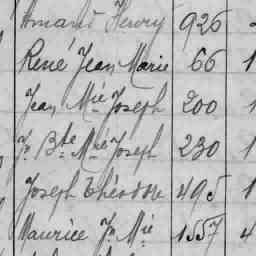 Amand Henry 926
René Jean Marie 66 1
Jean Mie Joseph 200 1
Jn Bte Mie Joseph 230 1
Joseph Théodore 495 1
Maurice Jn Mie 1557 4